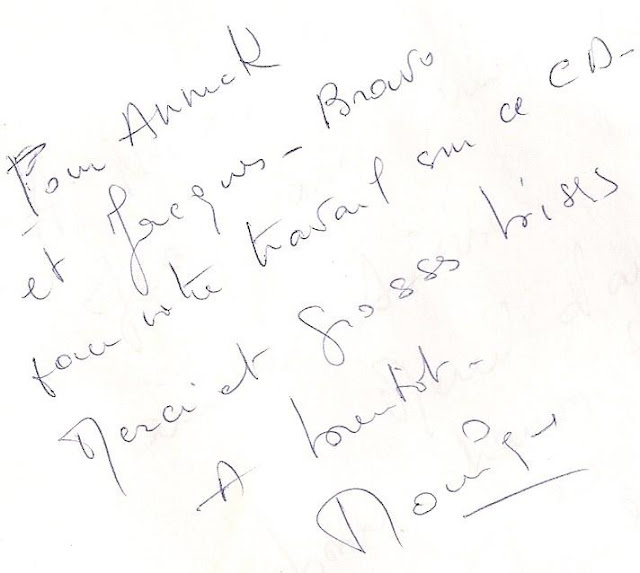 Pour Annick
et Jacques - Bravo
pour votre travail sur ce CD -
Merci et grosses bises
A bientôt -
Monique